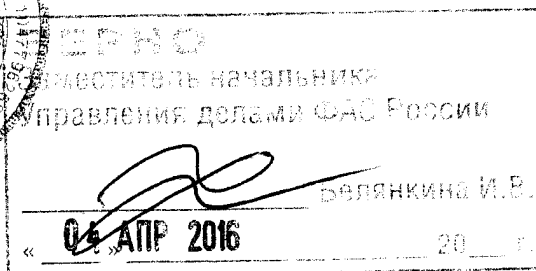 ВЕРНО
Заместитель начальника
Управления делами ФАС России
Белянкина И.В.
« 04 » АПР 2016 20___ г.